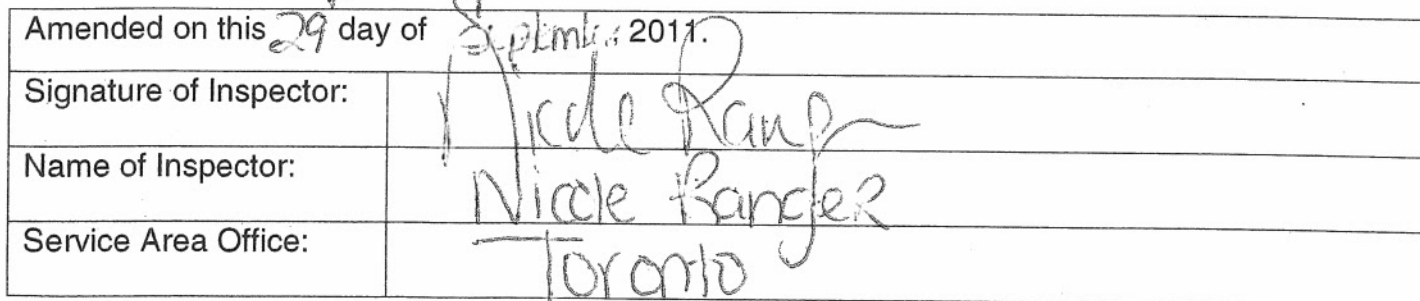 Amended on this 29 day of September 2011.
Signature of Inspector: Nicole Ranger
Name of Inspector: Nicole Ranger
Service Area Office: Toronto